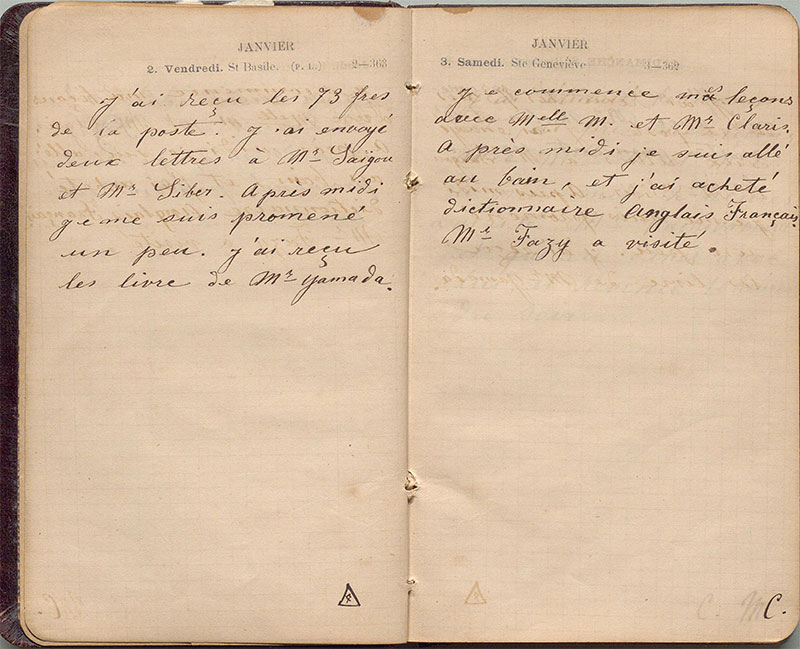 JANVIER
2. Vendredi. St Basile. (P. L.) 2—363
J'ai reçu les 73 frcs
de la poste. J'ai envoyé
deux lettres à Mr Saigou
et Mr Siber. Après midi
je me suis promené
un peu. J'ai reçu
les livre de Mr Yamada.
JANVIER
3. Samedi. Ste Geneviève 3—362
Je commence leçons
avec Melle M. et Mr Claris.
Après midi je suis allé
au bain, et j'ai acheté
dictionnaire Anglais Français.
Mr Fazy a visité.
C.